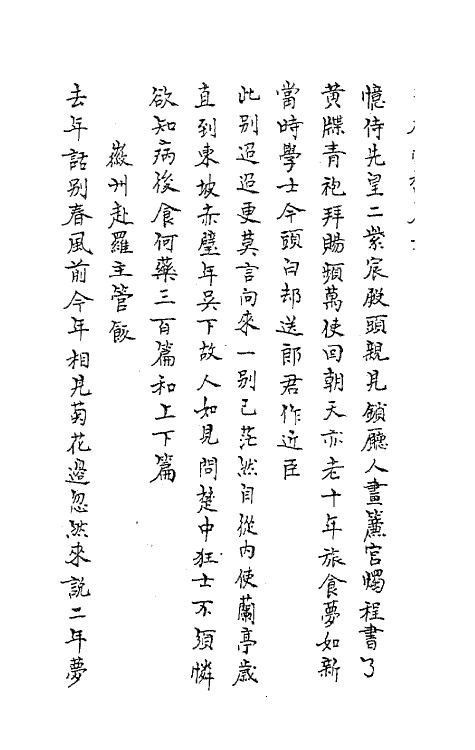 憶侍先皇二紫宸殿頭親見鎖廳人畫簾官燭程書了
黄牒青袍拜賜頻萬使回朝天亦老十年旅食夢如新
當時學士今頭白却送郎君作近臣
此别迢迢更莫言向來一别已茫然自從内使蘭亭歲
直到東坡赤壁年吴下故人如見問楚中狂士不須憐
欲知病後食何藥三百篇和上下篇
徽州赴羅主管飯
去年話别春風前今年相見菊花邉忽然來說二年夢